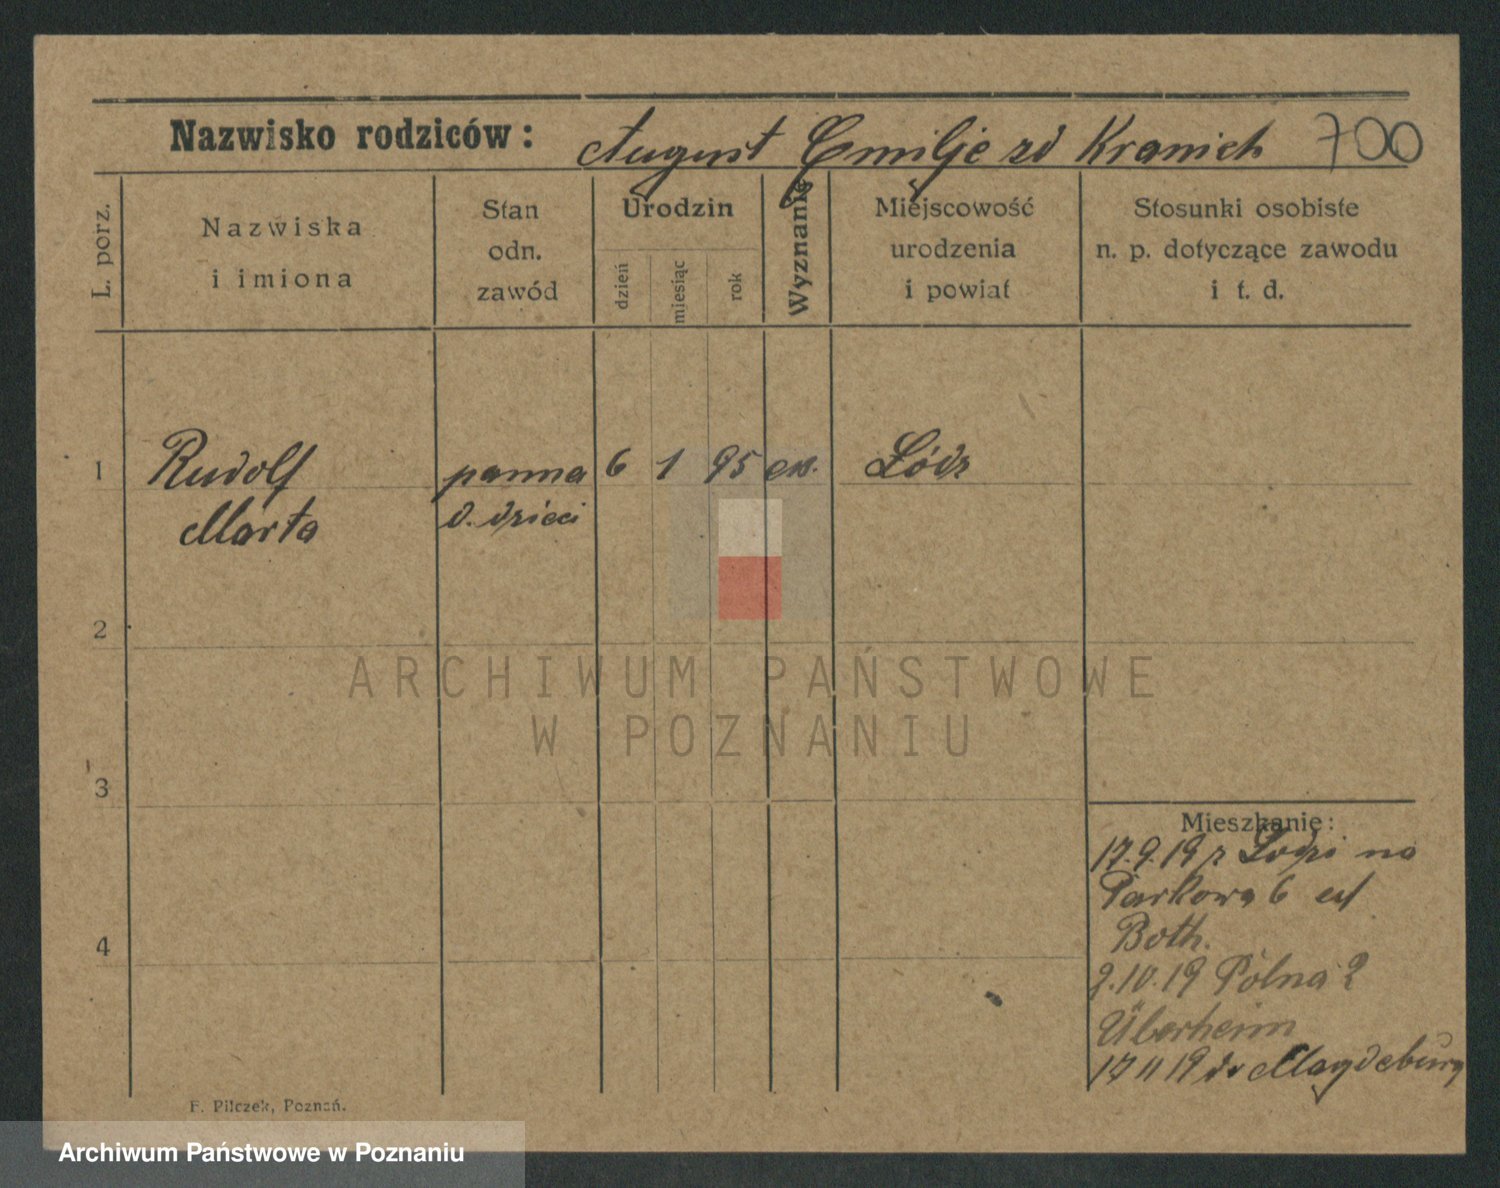 Nazwisko rodziców: August Emilje zd Kranich 700
L. porz.
Nazwiska
i imiona
Stan
odn.
zawód
Urodzin
dzień
miesiąc
rok
Wyznanie
Miejscowość
urodzenia
i powiat
Stosunki osobiste
n. p. dotyczące zawodu
i t. d.
1 Rudolf panna 6 1 95 ew. Łódz
Marta d. dzieci
2
ARCHIWUM PAŃSTWOWE
W POZNANIU
3
Mieszkanie:
17.9.19 z Łodzi na
Parkowa 6
Both.
4
2.10.19 Polna 2
Überheim
17 11 19 do Magdeburg
F. Pilczek, Poznań.
Archiwum Państwowe w Poznaniu